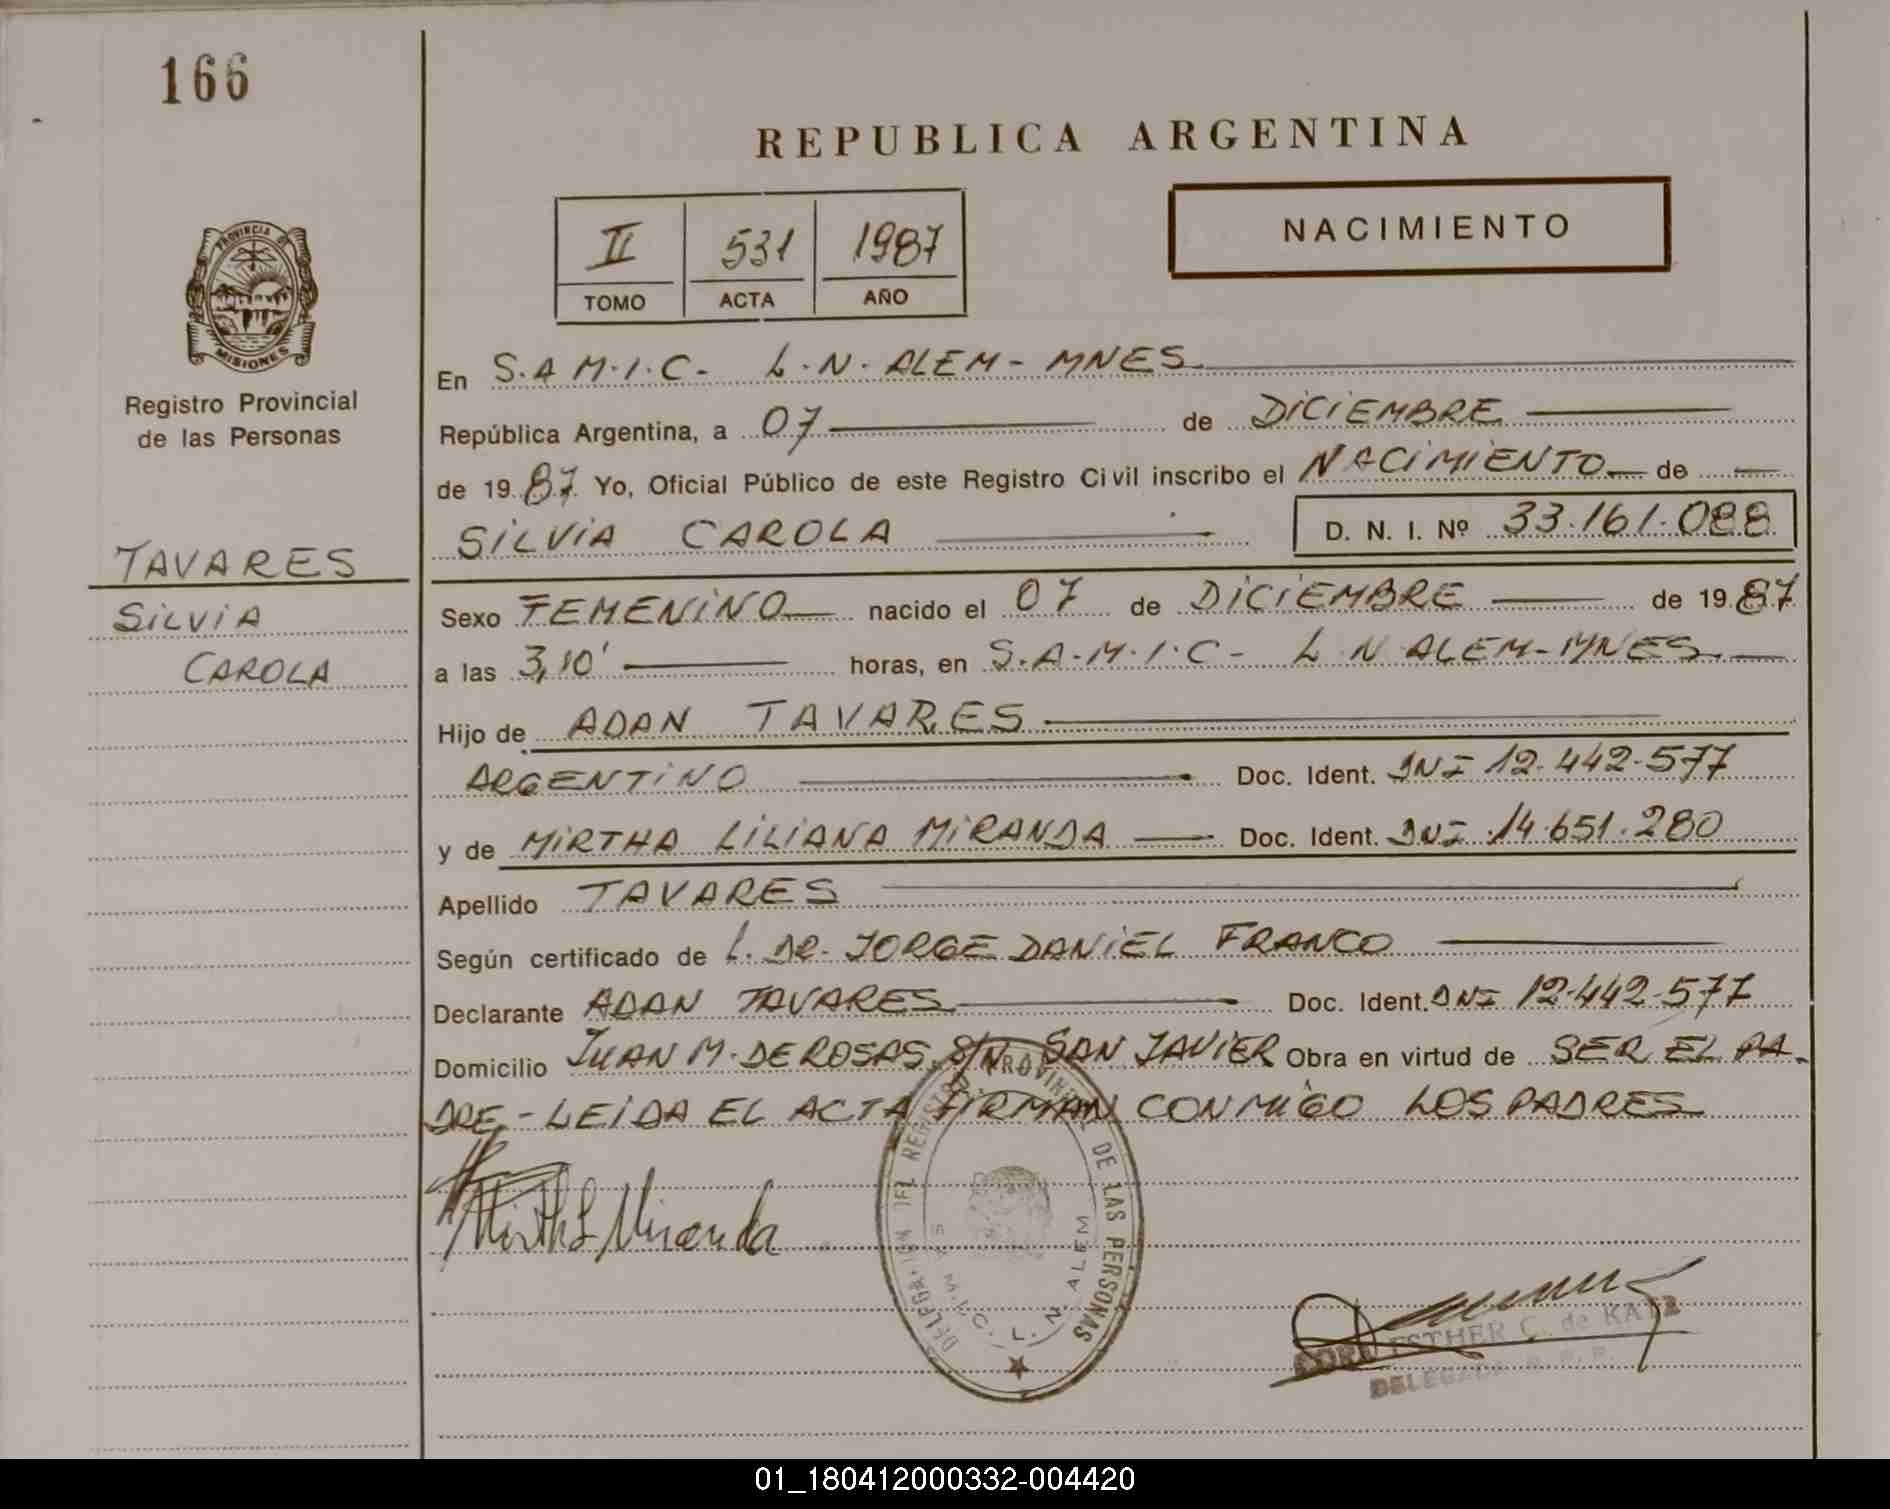 166
REPUBLICA ARGENTINA
II 531 1987
TOMO ACTA AÑO
NACIMIENTO
PROVINCIA DE
MISIONES
Registro Provincial
de las Personas
TAVARES
SILVIA
CAROLA
En S.A.M.I.C- L.N.ALEM- MNES
República Argentina, a 07 de DICIEMBRE
de 1987 Yo, Oficial Público de este Registro Civil inscribo el NACIMIENTO de
SILVIA CAROLA D. N. I. Nº 33.161.088
Sexo FEMENINO nacido el 07 de DICIEMBRE de 1987
a las 3,10' horas, en S.A.M.I.C- L N ALEM-MNES
Hijo de ADAN TAVARES
ARGENTINO Doc. Ident. DNI 12.442.577
y de MIRTHA LILIANA MIRANDA Doc. Ident. DNI 14.651.280
Apellido TAVARES
Según certificado de L. DR. JORGE DANIEL FRANCO
Declarante ADAN TAVARES Doc. Ident. DNI 12.442.577
Domicilio JUAN M. DE ROSAS S/N SAN JAVIER Obra en virtud de SER EL PA-
DRE-LEIDA EL ACTA FIRMAN CONMIGO LOS PADRES
Mirtha L Miranda
DELEGACION DEL REGISTRO PROVINCIAL DE LAS PERSONAS
S.A.M.I.C. L. N. ALEM
ESTHER C. de KATZ
DELEGADA R. P. P.
01_180412000332-004420